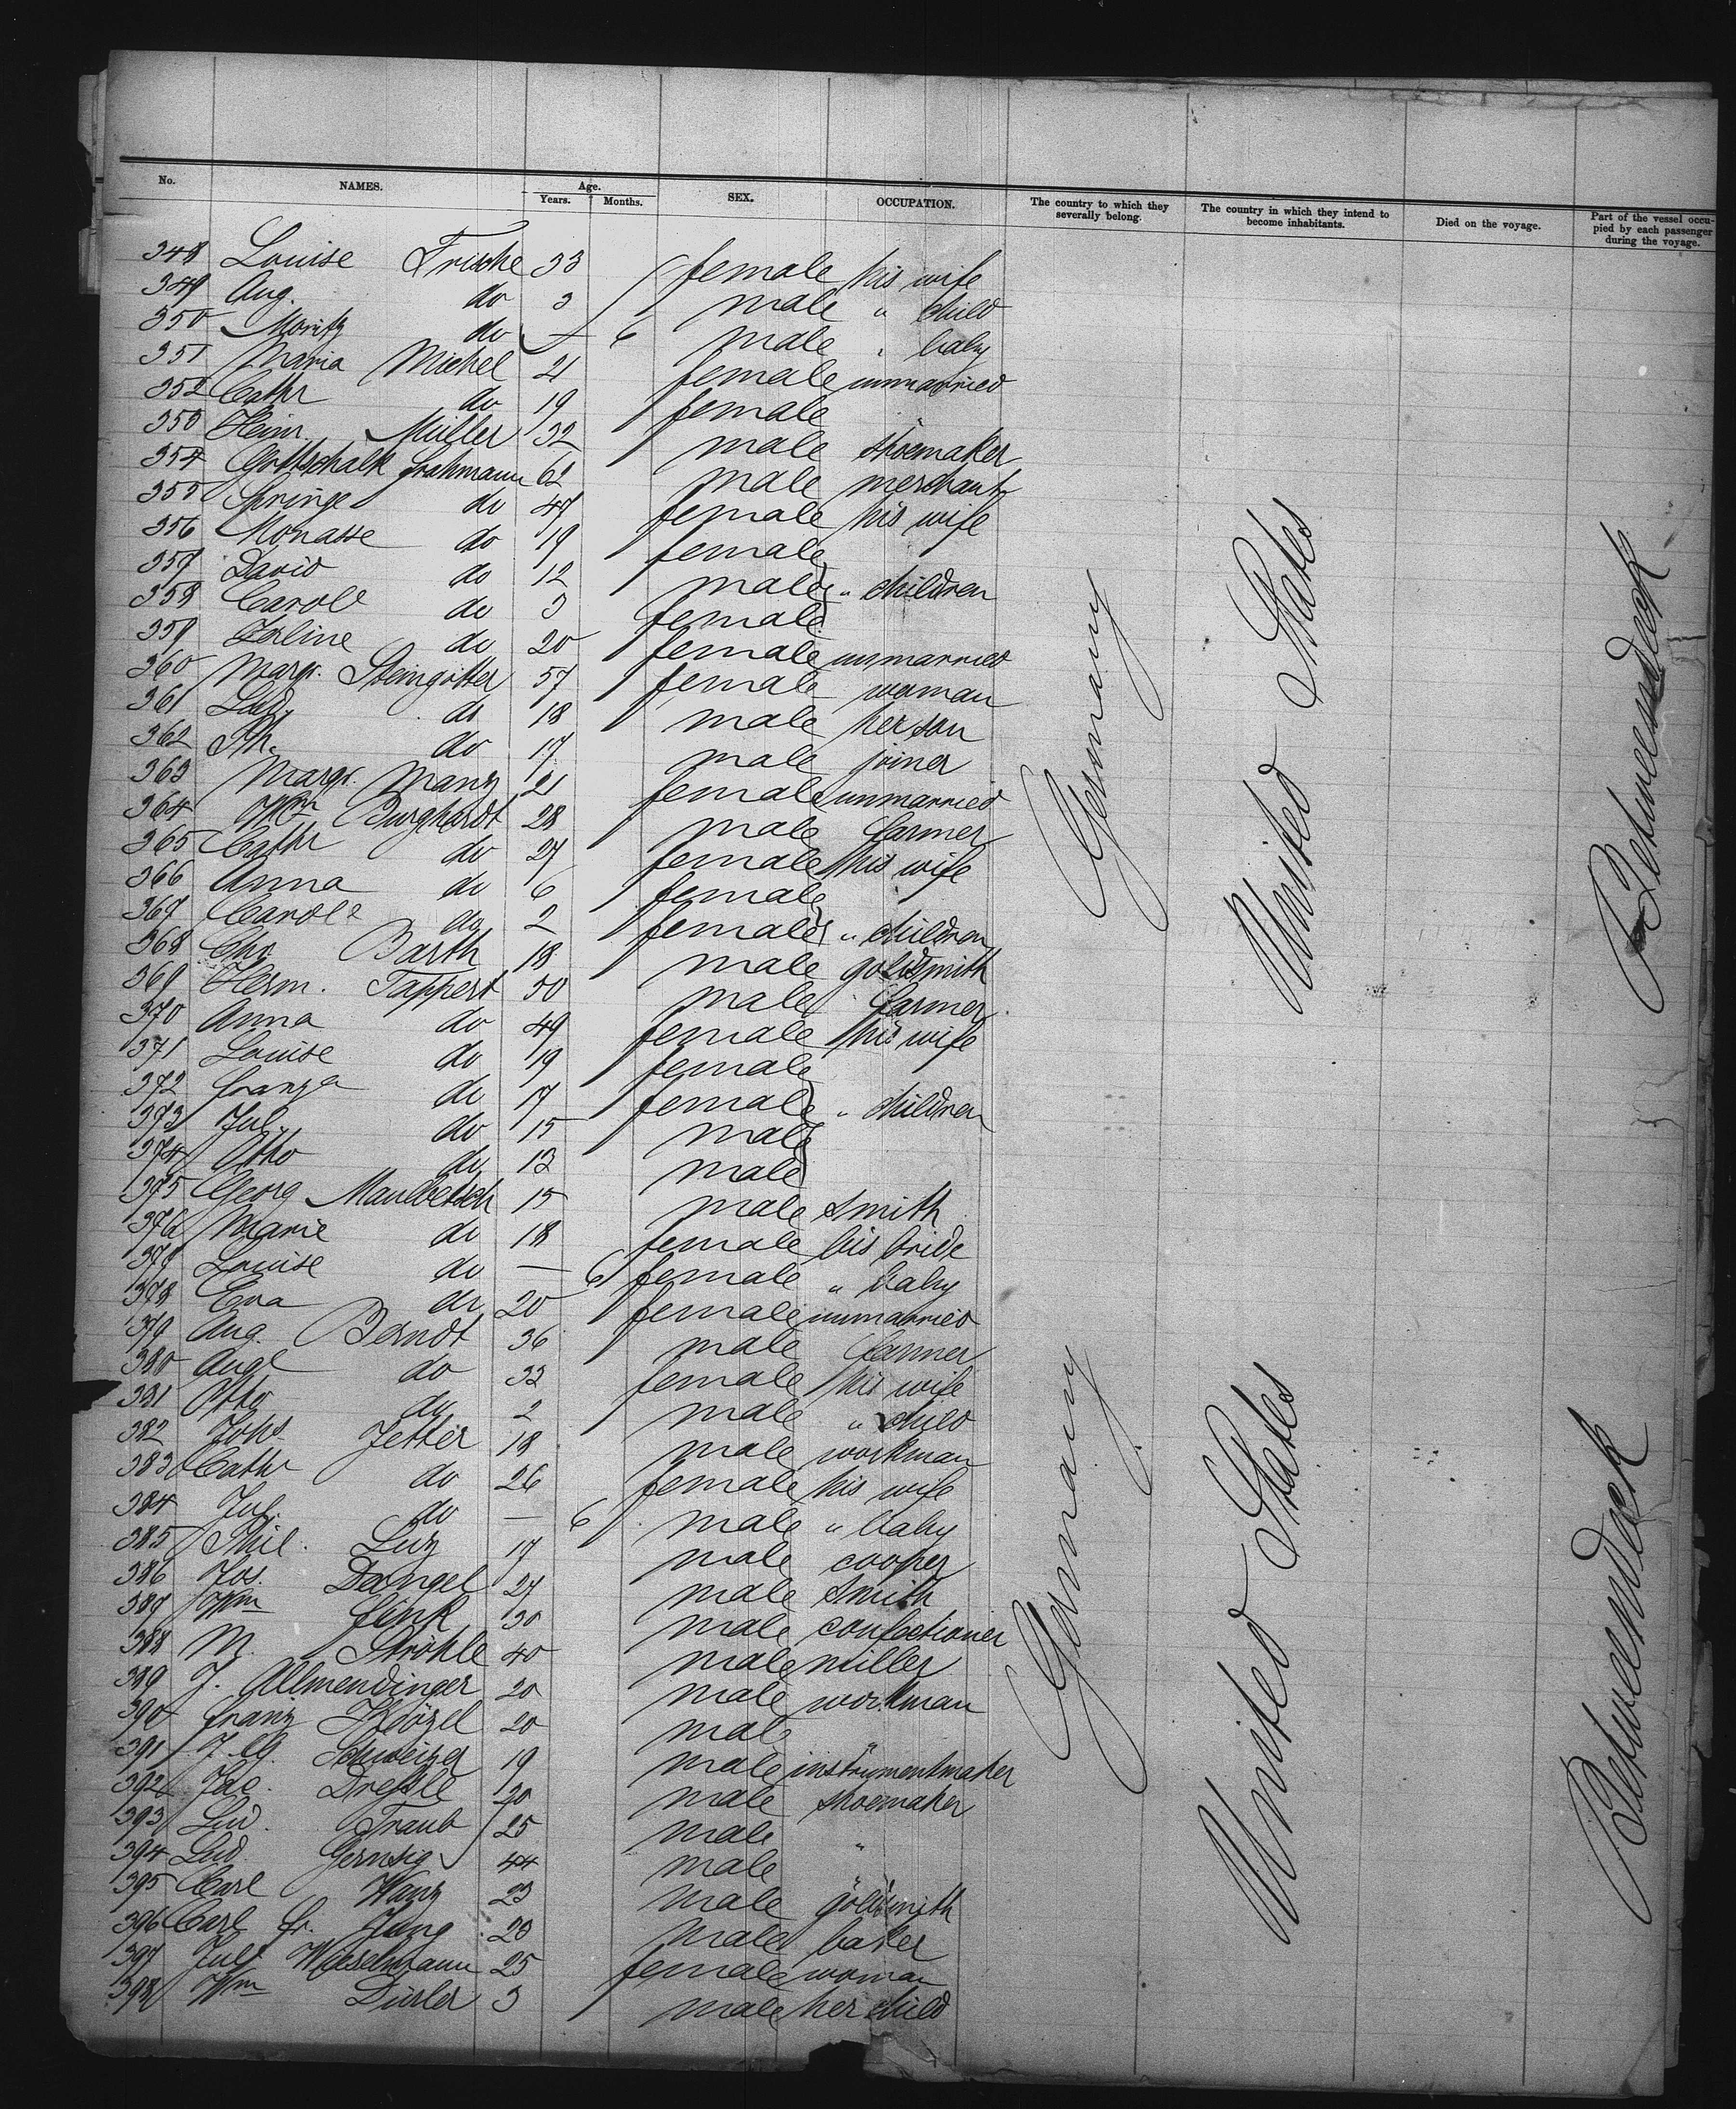 No. NAMES. Age. Years. Months. SEX. OCCUPATION. The country to which they severally belong. The country in which they intend to become inhabitants. Died on the voyage. Part of the vessel occupied by each passenger during the voyage.
348 Louise Frische 33 female his wife
349 Aug. do 3 male " child
350 Moritz do — 6 male " baby
351 Maria Michel 21 female unmarried
352 Cathr do 19 female "
353 Heinr. Müller 32 male shoemaker
354 Gottschalk Grahmann 62 male merchant
355 Springe do 47 female his wife
356 Monasse do 19 female
357 David do 12 male " children
358 Carol do 3 female
359 do 20 female unmarried
360 Margr. Steingötter 57 female woman
361 Lud. do 18 male her son
362 Ph. do 17 male joiner
363 Margr. Manz 21 female unmarried
364 Wm Burghardt 28 male farmer
365 Cathr do 27 female his wife
366 Anna do 6 female
367 Carole do 2 female " children
368 Chr. Barth 18 male goldsmith
369 Herm. Tappert 50 male farmer
370 Anna do 49 female his wife
371 Louise do 19 female
372 Franza do 17 female " children
373 Jul. do 15 male
374 Otto do 13 male
375 Georg Maulbetsch 15 male smith
376 Marie do 18 female his bride
377 Louise do — 6 female " baby
378 Eva do 20 female unmarried
379 Aug. Berndt 36 male farmer
380 Aug do 32 female his wife
381 Otto do 2 male " child
382 Johs Jetter 18 male workman
383 Cathr do 26 female his wife
384 Jul. do — 6 male " baby
385 Phil. Luz 17 male cooper
386 Jos. Dangel 27 male smith
387 Wm Fink 30 male confectioner
388 M. Ströhle 40 male miller
389 J. Allmendinger 20 male workman
390 Franz 20 male "
391 J. G. Schweizer 19 male instrumentmaker
392 Jac. Dressle 20 male shoemaker
393 Lud. Traub 25 male "
394 Lud. Gernsig 44 male "
395 Carl Wanz 23 male goldsmith
396 Carl Fr. Jung 23 male baker
397 Jul. Wieselmann 25 female woman
398 Wm Dürler 3 male her child
Germany United States Betweendeck
Germany United States Betweendeck